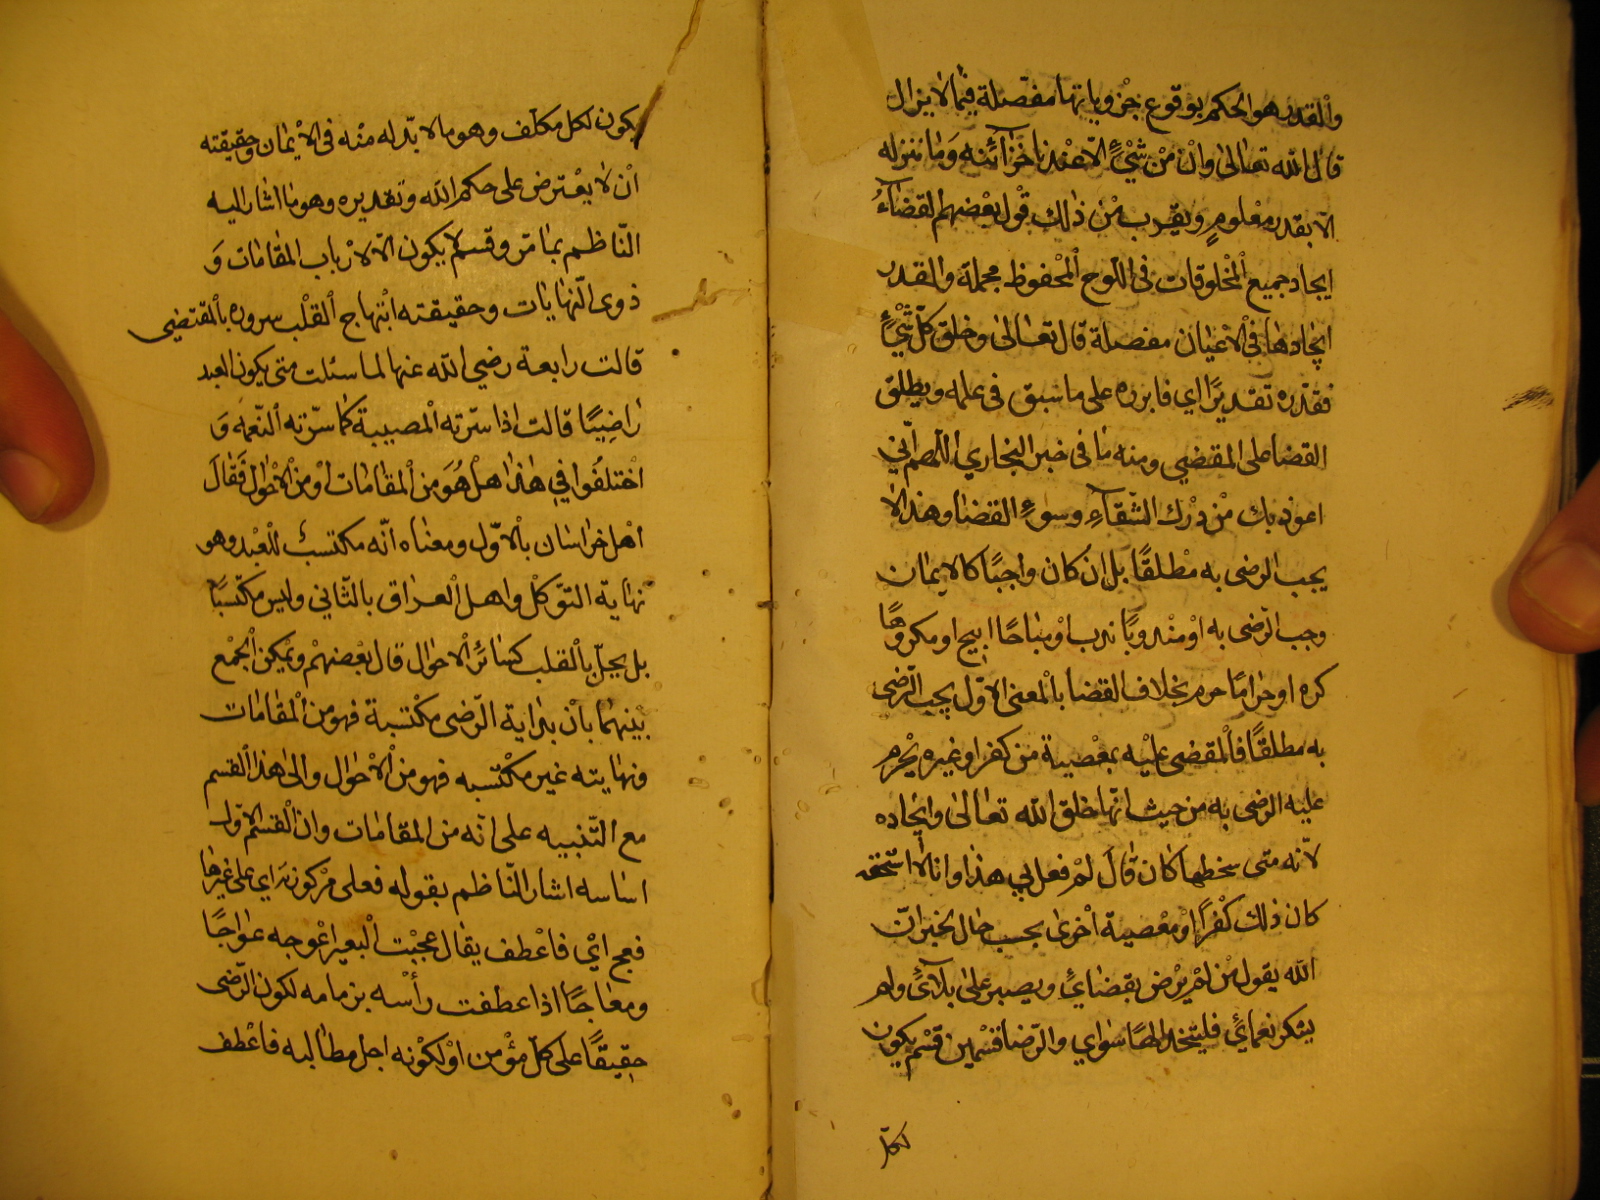 والقدر هو الحكم بوقوع جزوياتها مفصلة فيما لا يزال
قال الله تعالى وان من شيء الا عندنا خزائنه وما ننزله
الا بقدر معلوم ويقرب من ذلك قول بعضهم القضاء
ايجاد جميع المخلوقات في اللوح المحفوظ مجملة والقدر
ايجادها في الاعيان مفصلة قال تعالى وخلق كل شيء
فقدره تقديرا اي فابرزه على ما سبق في علمه ويطلق
القضا على المقضي ومنه ما في خبر البخاري اللهم اني
اعوذ بك من درك الشقاء وسوء القضا وهذا لا
يجب الرضى به مطلقا بل ان كان واجبا كالايمان
وجب الرضى به او مندوبا ندب او مباحا ابيح او مكروها
كره او حراما حرم بخلاف القضا بالمعنى الاول يجب الرضى
به مطلقا فالمقضى عليه بمعصية من كفر او غيره يحرم
عليه الرضى به من حيث انها خلق الله تعالى وايجاده
لانه متى سخطها كان قال لم فعل بي هذا وانا لا استحقه
كان ذلك كفرا او معصية اخرى بحسب حال لخبر ان
الله يقول من لم يرض بقضائي ويصبر على بلائي ولم
يشكر نعمائي فليتخذ الها سواي والرضا قسمين قسم يكون
لكل
يكون لكل مكلف وهو ما لا بد له منه في الايمان وحقيقته
ان لا يعترض على حكم الله وتقديره وهو ما اشار اليه
الناظم بما مر وقسم لا يكون الا لارباب المقامات و
ذوى النهايات وحقيقته ابتهاج القلب سروره بالمقتضى
قالت رابعة رضي الله عنها لما سئلت متى يكون العبد
راضيا قالت اذا سرته المصيبة كما سرته النعمه و
اختلفوا في هذا هل هو من المقامات او من الاحوال فقال
اهل خراسان بالاول ومعناه انه مكتسب للعبد وهو
نهاية التوكل واهل العراق بالثاني وليس مكتسبا
بل يحل بالقلب كسائر الاحوال قال بعضهم ويمكن الجمع
بينهما بان بداية الرضى مكتسبة فهو من المقامات
ونهايته غير مكتسبه فهو من الاحوال والى هذا القسم
مع التنبيه على انه من المقامات وان القسم الاول
اساسه اشار الناظم بقوله فعلى مركوزته اي على غيرها
فعج اي فاعطف يقال عجبت البعير اعوجه عواجا
ومعاجا اذا عطفت رأسه بزمامه لكون الرضى
حقيقا على كل مؤمن او لكونه اجل مطالبه فاعطف